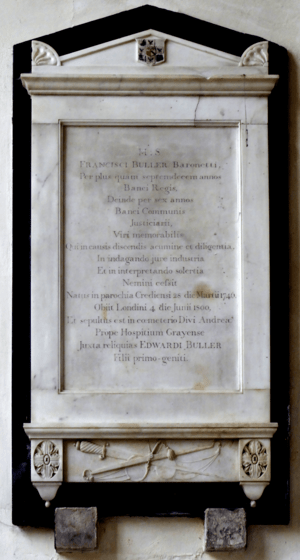 H. S
FRANCISCI BULLER Baronetti,
Per plus quam septemdecem annos
Banci Regis,
Deinde per sex annos
Banci Communis
Justiciarii,
Viri memorabilis,
Qui in causis discendis acumine et diligentia,
In indagando jure industria
Et in interpretando solertia
Nemini cessit
Natus in parochia Crediensi 28 die Martii 1746.
Obiit Londini 4 die Junii 1800.
Et sepultus est in cœmeterio Divi Andreæ
Prope Hospitium Grayense
Juxta reliquias EDWARDI BULLER
Filii primo-geniti.